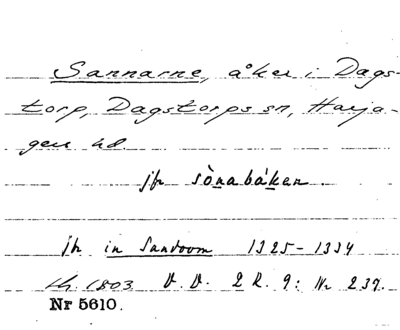 Sannarne, åker i Dags-
torp, Dagstorps sn, Harja-
gers hd.
jfr sònabáken.
jfr in Sandoom 1325-1334
Lh. 1803 D. D. 2 R. 9: Nr 237.
Nr 5610.